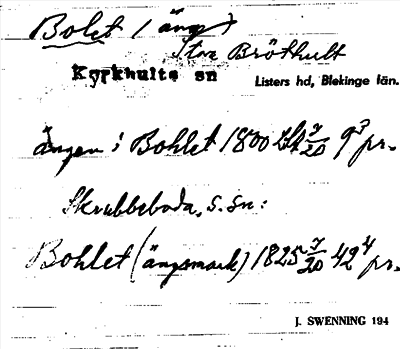 Bolet (äng)
Stora Bröthult
Kyrkhults sn Listers hd, Blekinge län.
ängen i Bohlet 1800 7/20 9 3 pr.
Skrubbeboda, s. sn:
Bohlet (ängsmark) 1825 7/20 42 4 pr.
J. SWENNING 194